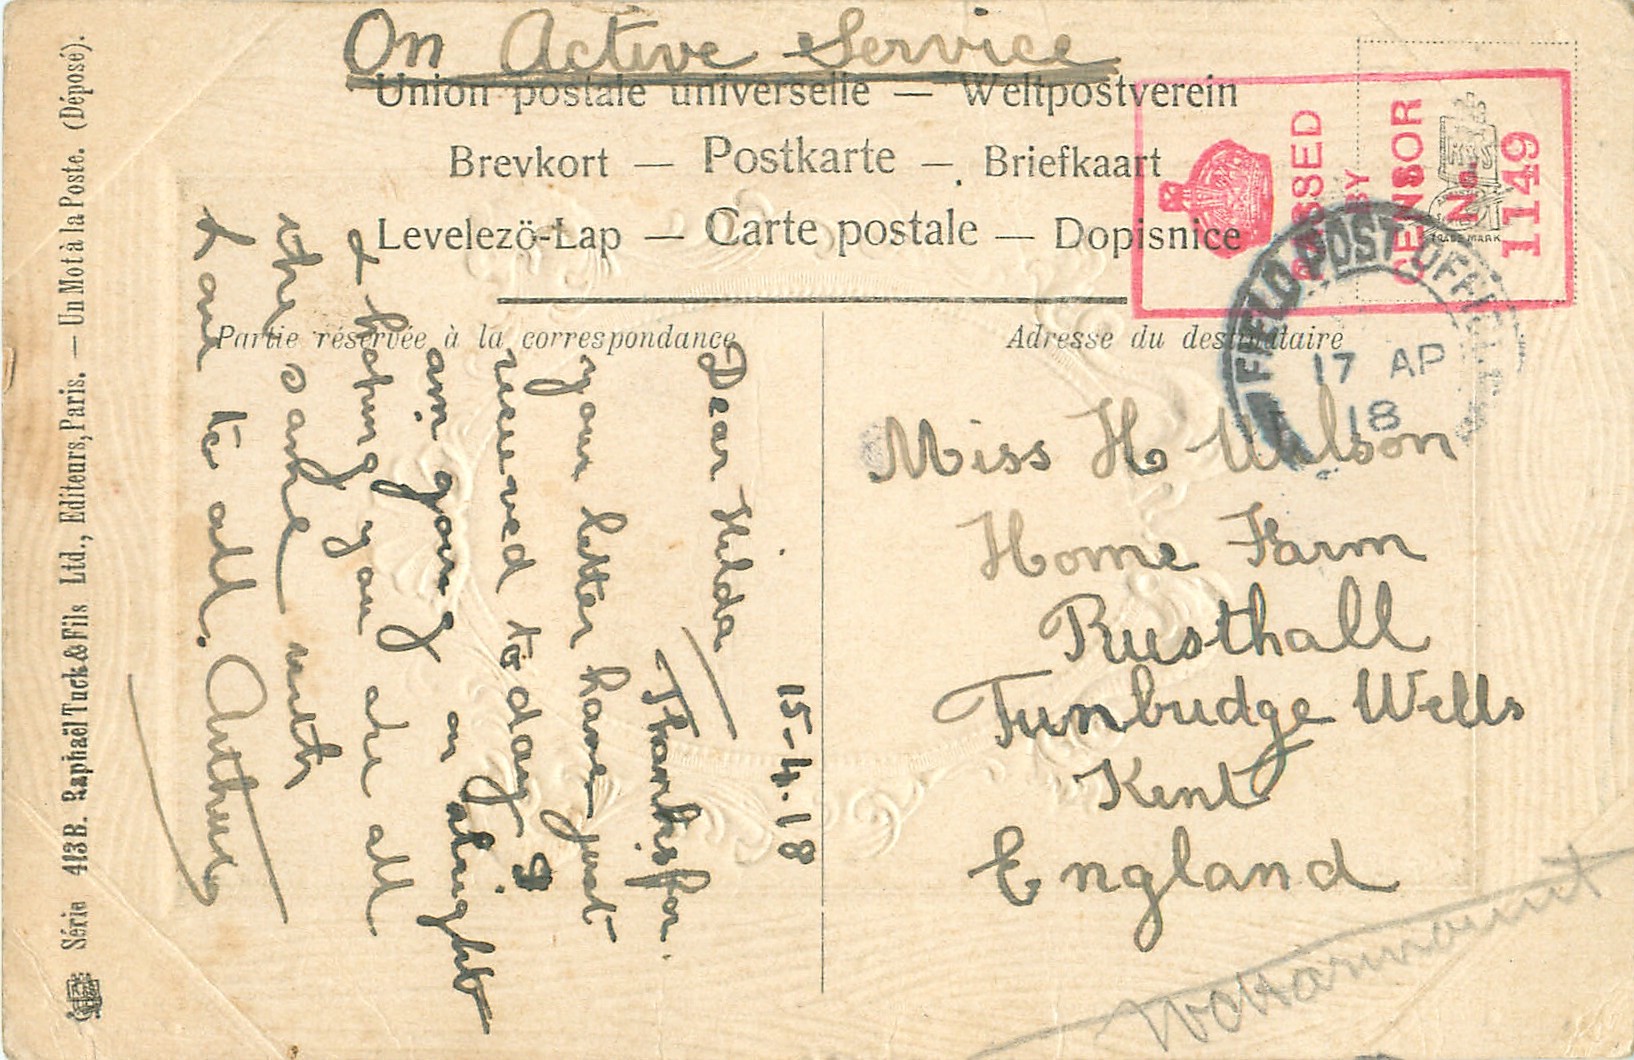 On Active Service
Union postale universelle — Weltpostverein
Brevkort — Postkarte — Briefkaart
Levelezö-Lap — Carte postale — Dopisnice
PASSED
BY
CENSOR
No.
1149
TRADE MARK
FIELD POST OFFICE
17 AP
18
Partie réservée à la correspondance
Adresse du destinataire
15-4-18
Dear Hilda
Thanks for
your letter have just
received to day I
am going on alright
& hoping you are all
the same with
Love to all. Arthur
Miss H Wilson
Home Farm
Rusthall
Tunbridge Wells
Kent
England
Série 413 B. Raphaël Tuck & Fils Ltd., Editeurs, Paris. — Un Mot à la Poste. (Déposé).